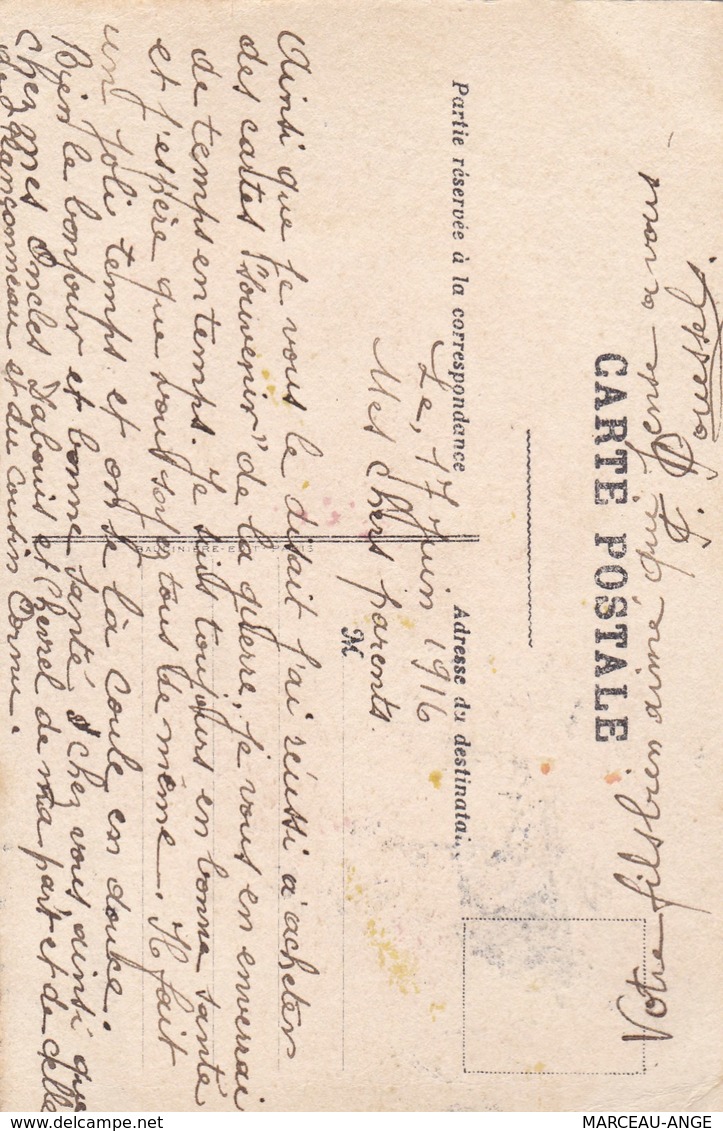 CARTE POSTALE
Partie réservée à la correspondance
Adresse du destinataire
BAUDINIÈRE-EDIT. PARIS
M
Le, 17 Juin 1916
Mes chers parents.
Ainsi que je vous le disait j'ai réussi à acheter
des cartes "souvenir" de la guerre, je vous en enverrai
de temps en temps. Je suis toujours en bonne santé
et j'espère que vous soyez tous de même. Il fait
un joli temps et on se la coule en douce.
Bien le bonjour et bonne santé chez vous, ainsi que
chez mes oncles et de ma part et de celle
de et du cousin Cornu.
Votre fils bien aimé qui pense à vous
MARCEAU-ANGE